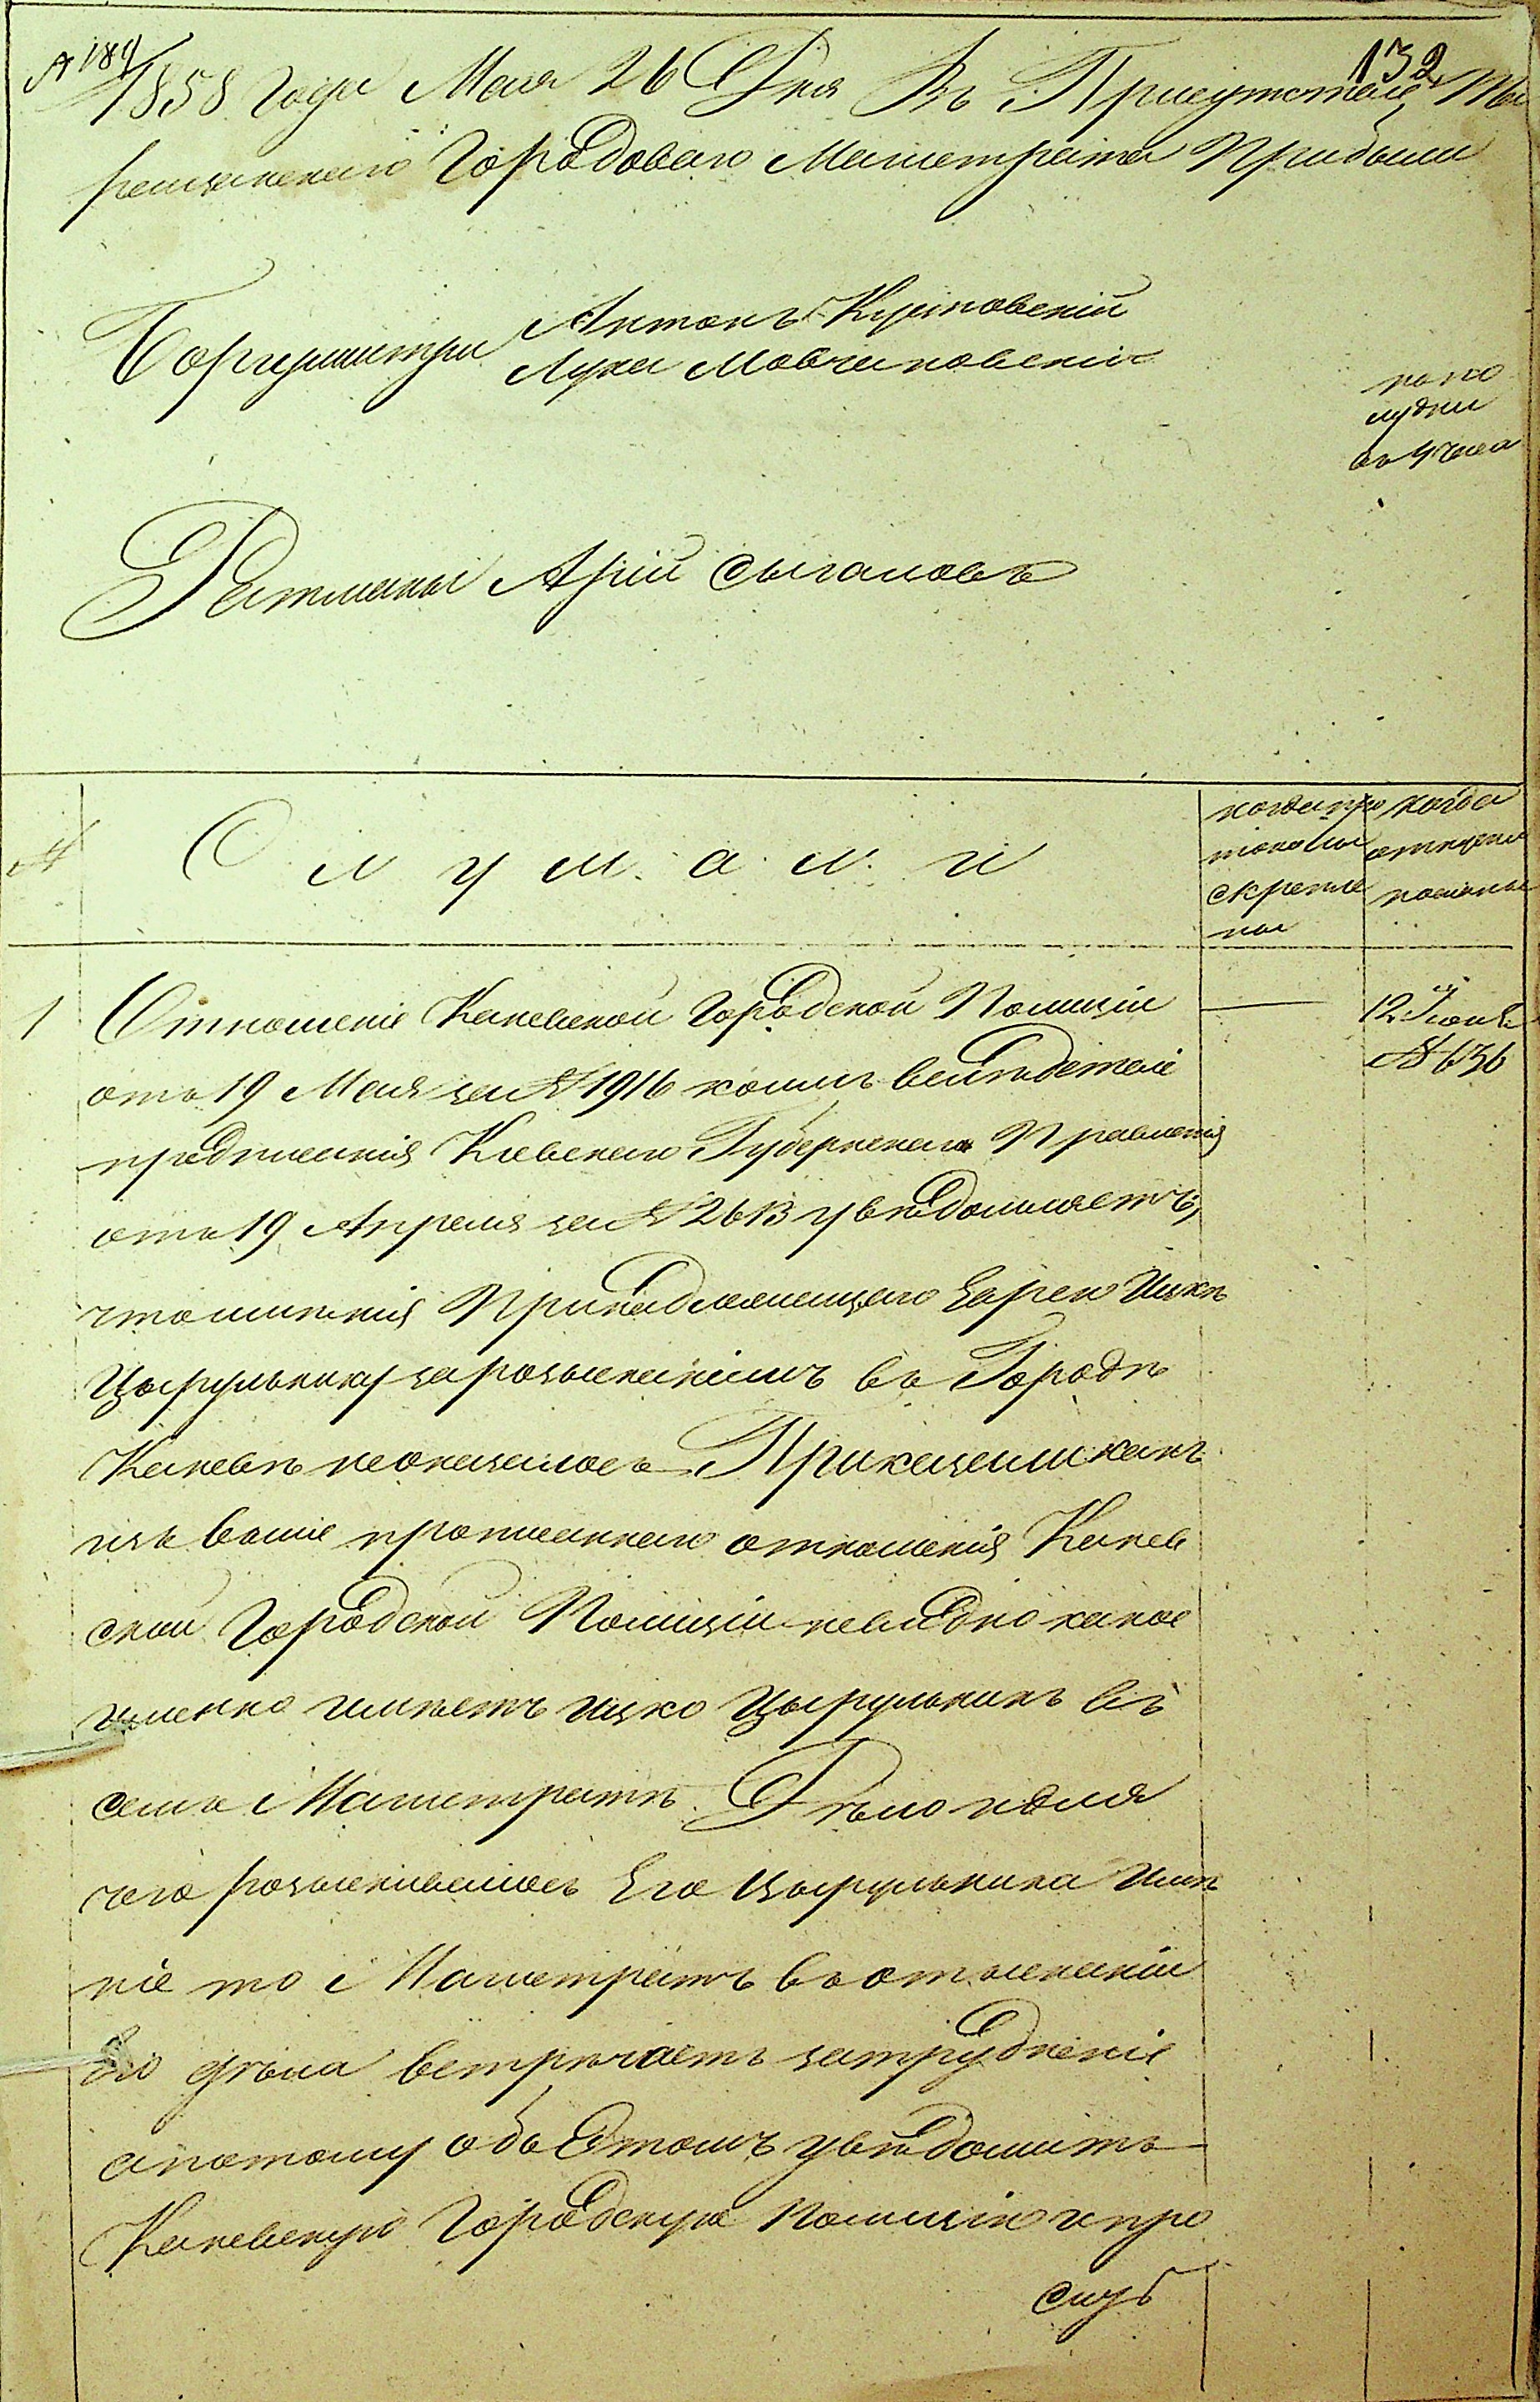 № 184
132
1858 Года Мая 26 Дня Въ Присутствіе Та
ращанскаго Городоваго Магистрата Прибыли
Боргумистри Антонъ Куликовскій
Лука Мовчановскій
по по
лудни
въ 4 часа
Ратманы Арій Цыгановъ
№
С л у ш а л и
когда про
токолы
скрепле
ны
когда
отпуски
посланы
1
Отношеніе Каневской Городской Полиціи
отъ 19 Мая за № 1916 коимъ въ слѣдствіе
предписанія Кіевскаго Губернскаго Правленія
отъ 19 Апреля за № 2613 увѣдомляетъ,
что имѣнія Принадлежащаго Еврею Ицкѣ
Цырульнику за розысканіемъ въ Городѣ
Каневѣ неоказалось Приказали какъ
изъ выше прописаннаго отношенія Канев
ской Городской Полиціи невидно какое
именно имѣетъ Ицко Цырульникъ въ
семъ Магистратѣ Дѣло и для
чего розыскивалось Его Цырульника Имѣ
ніе то Магистратъ въ отысканіи
сего дѣла встрѣчаетъ затрудненіе
а потому объ этомъ увѣдомить
Каневскую Городскую Полицію и про
сить
12 Іюня
№ 636